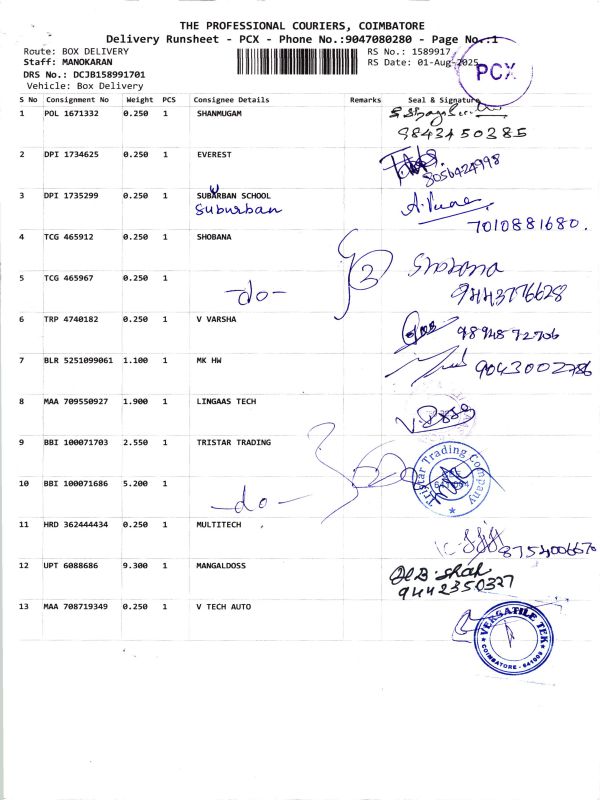 THE PROFESSIONAL COURIERS, COIMBATORE
Delivery Runsheet - PCX - Phone No.:9047080280 - Page No.:1
Route: BOX DELIVERY RS No.: 1589917
Staff: MANOKARAN RS Date: 01-Aug-2025
DRS No.: DCJB158991701
Vehicle: Box Delivery
PCX
S No Consignment No Weight PCS Consignee Details Remarks Seal & Signature
1 POL 1671332 0.250 1 SHANMUGAM
9843450285
2 DPI 1734625 0.250 1 EVEREST
8056424998
3 DPI 1735299 0.250 1 SUBWRBAN SCHOOL
Suburban
7010881680.
4 TCG 465912 0.250 1 SHOBANA
2 Shobana
5 TCG 465967 0.250 1
-do- 9443776628
6 TRP 4740182 0.250 1 V VARSHA
9894872706
7 BLR 5251099061 1.100 1 MK HW
9043002786
8 MAA 709550927 1.900 1 LINGAAS TECH
9 BBI 100071703 2.550 1 TRISTAR TRADING
Tristar Trading Company
10 BBI 100071686 5.200 1
-do-
11 HRD 362444434 0.250 1 MULTITECH
8754006670
12 UPT 6088686 9.300 1 MANGALDOSS
B. Shah
9442350327
13 MAA 708719349 0.250 1 V TECH AUTO
VERSATILE TEK
COIMBATORE